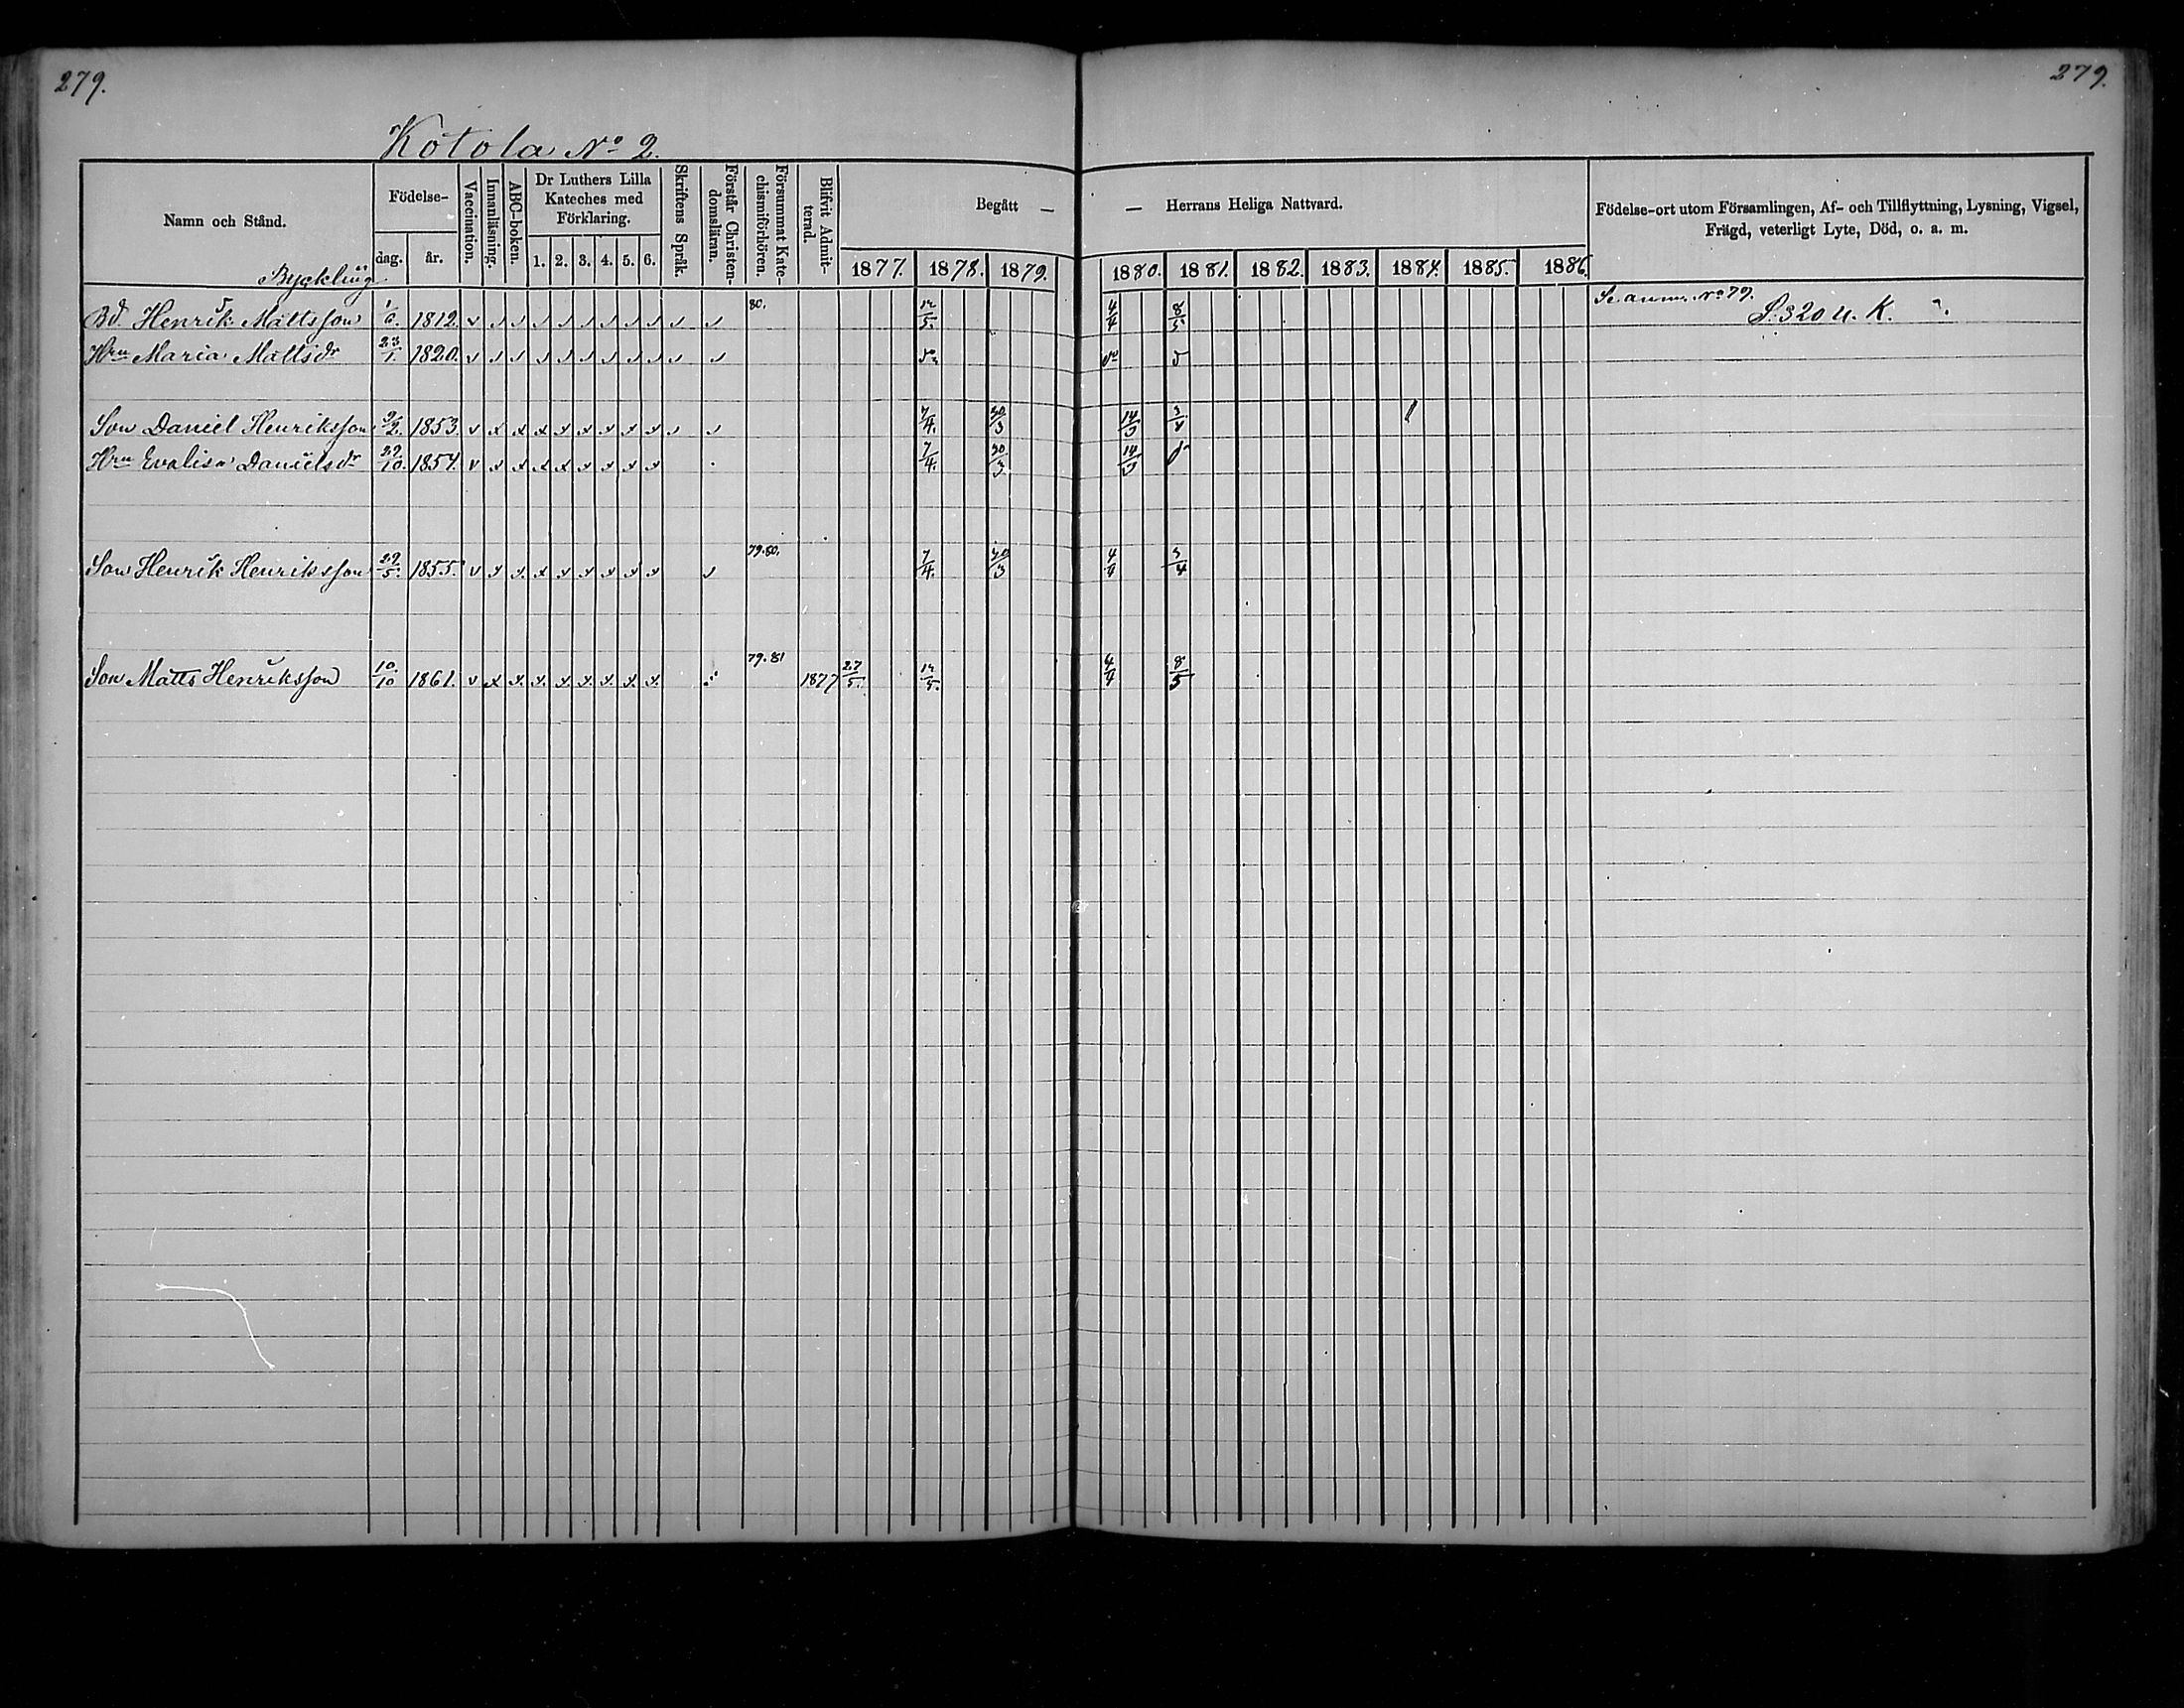 279.
279.
Kotola No 2.
Namn och Stånd.
Födelse-
dag.
år.
Vaccination.
Innanläsning.
ABC-boken.
Dr Luthers Lilla
Kateches med
Förklaring.
1. 2. 3. 4. 5. 6.
Skriftens Språk.
Förstår Christen-
domsläran.
Försummat Kate-
chismiförhören.
Blifvit Admit-
terad.
Begått — — Herrans Heliga Nattvard.
1877. 1878. 1879. 1880. 1881. 1882. 1883. 1884. 1885. 1886.
Födelse-ort utom Församlingen, Af- och Tillflyttning, Lysning, Vigsel,
Frägd, veterligt Lyte, Död, o. a. m.
Byckling
Bd. Henrik Mattsson 1812. 80. 4/4 8/5 Se anm. No 79. S. 320 u. K.
Hru Maria Mattsdr 23/1 1820.
Son Daniel Henriksson 9/2. 1853. 7/4. 30/3 14/3 3/4
Hru Evalisa Danielsdr 29/10. 1854. 7/4. 30/3 14/3
Son Henrik Henriksson 29/5. 1855. 79.80. 7/4. 30/3 4/4 3/4
Son Matts Henriksson 10/10 1861. 79.81 1877 27/5. 4/4 8/5